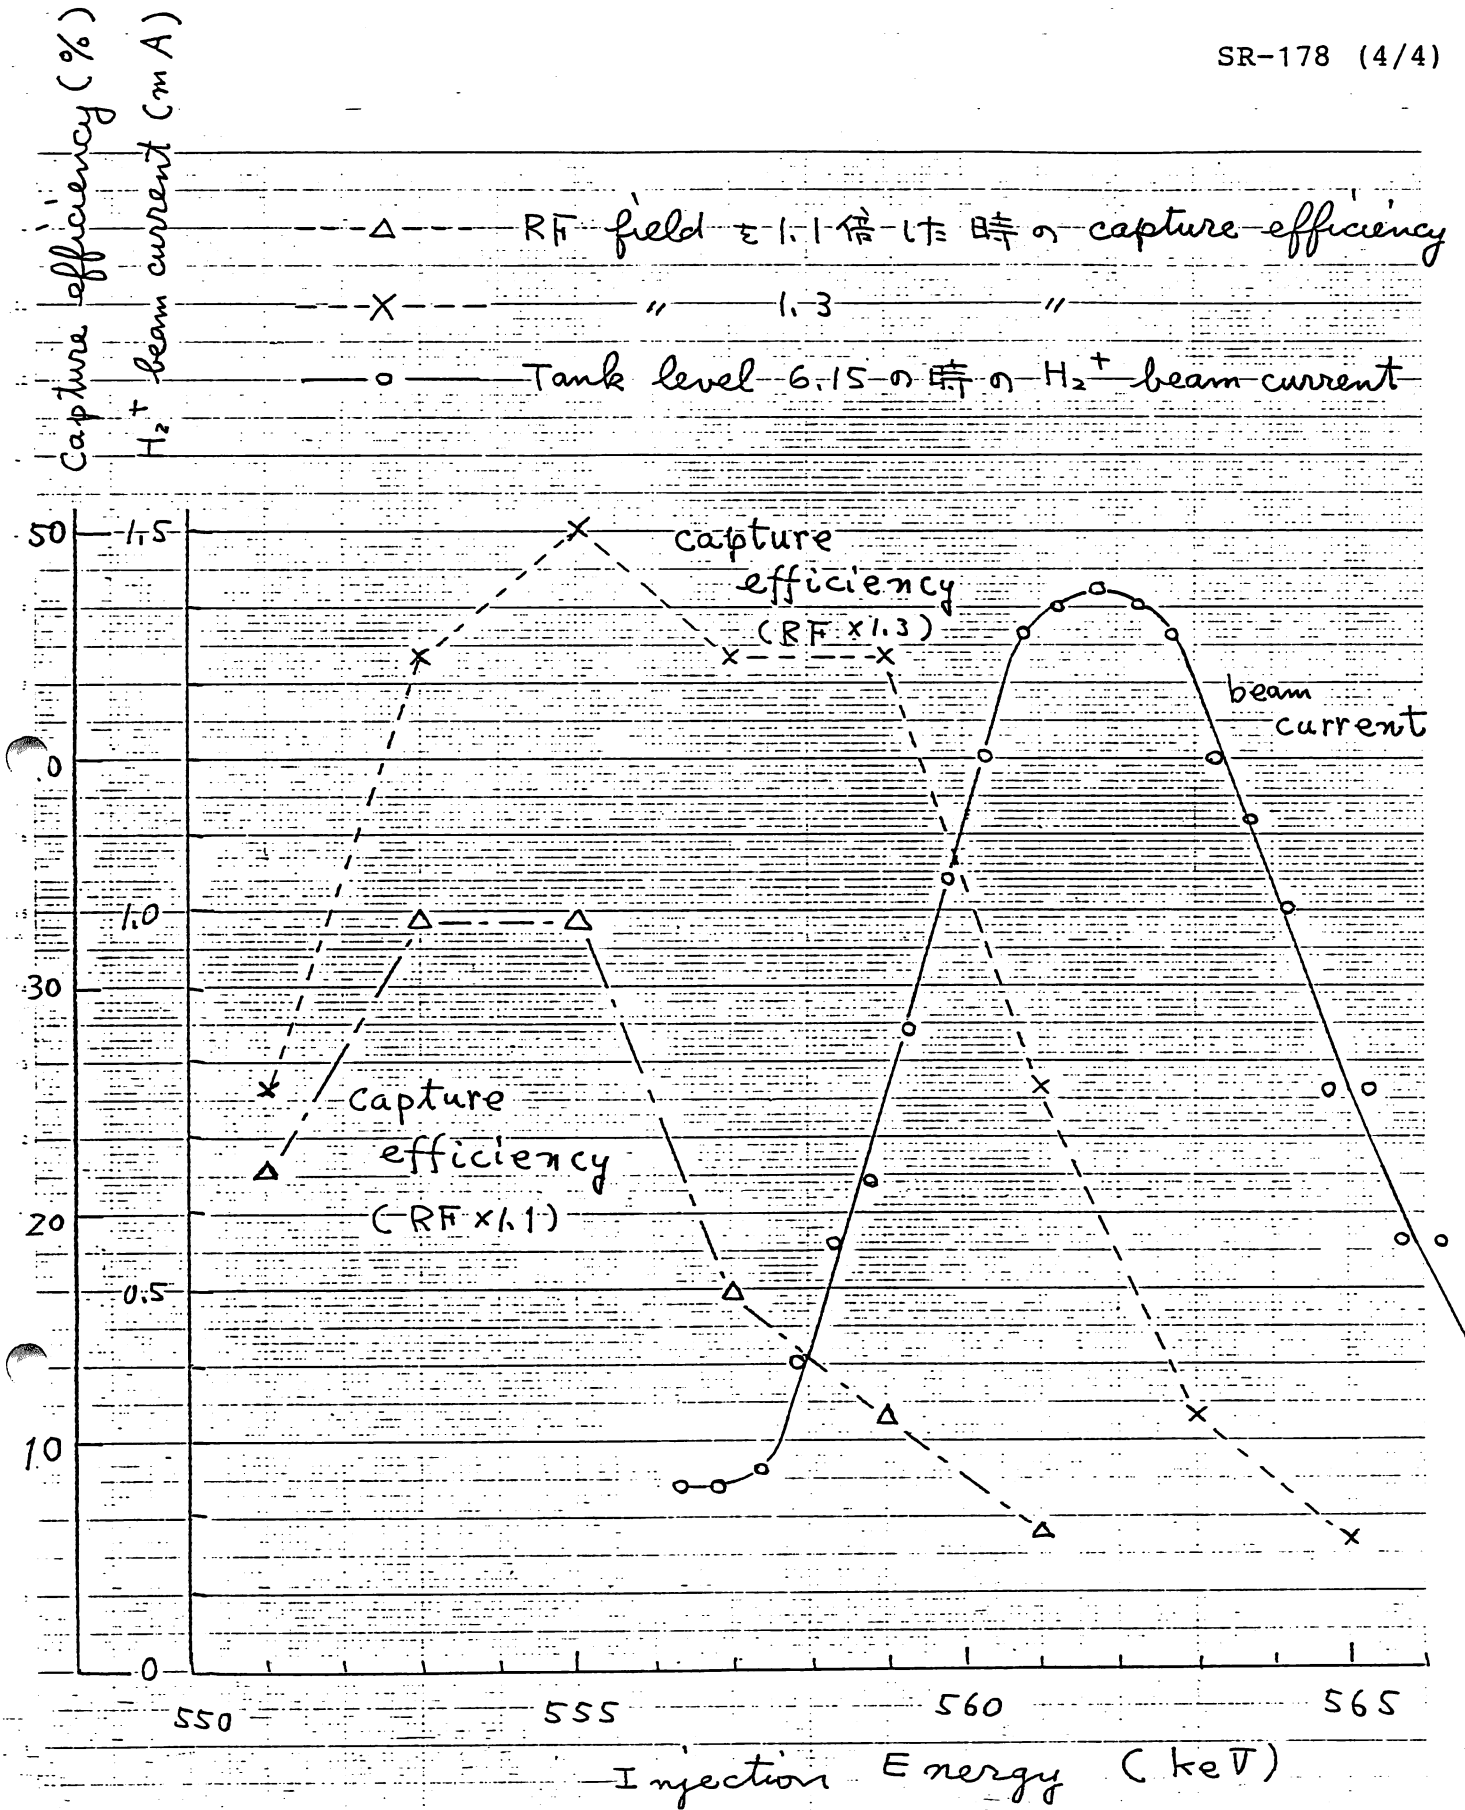 SR-178 (4/4)
Capture efficiency (%)
H₂⁺ beam current (mA)
---△--- RF field を 1.1 倍した 時の capture efficiency
---×--- 〃 1.3 〃
—○— Tank level 6.15 の時の H₂⁺ beam current
50 1.5
capture
efficiency
(RF ×1.3)
beam
current
0
1.0
30
capture
efficiency
(RF ×1.1)
20
0.5
10
0
550 555 560 565
Injection Energy (keV)